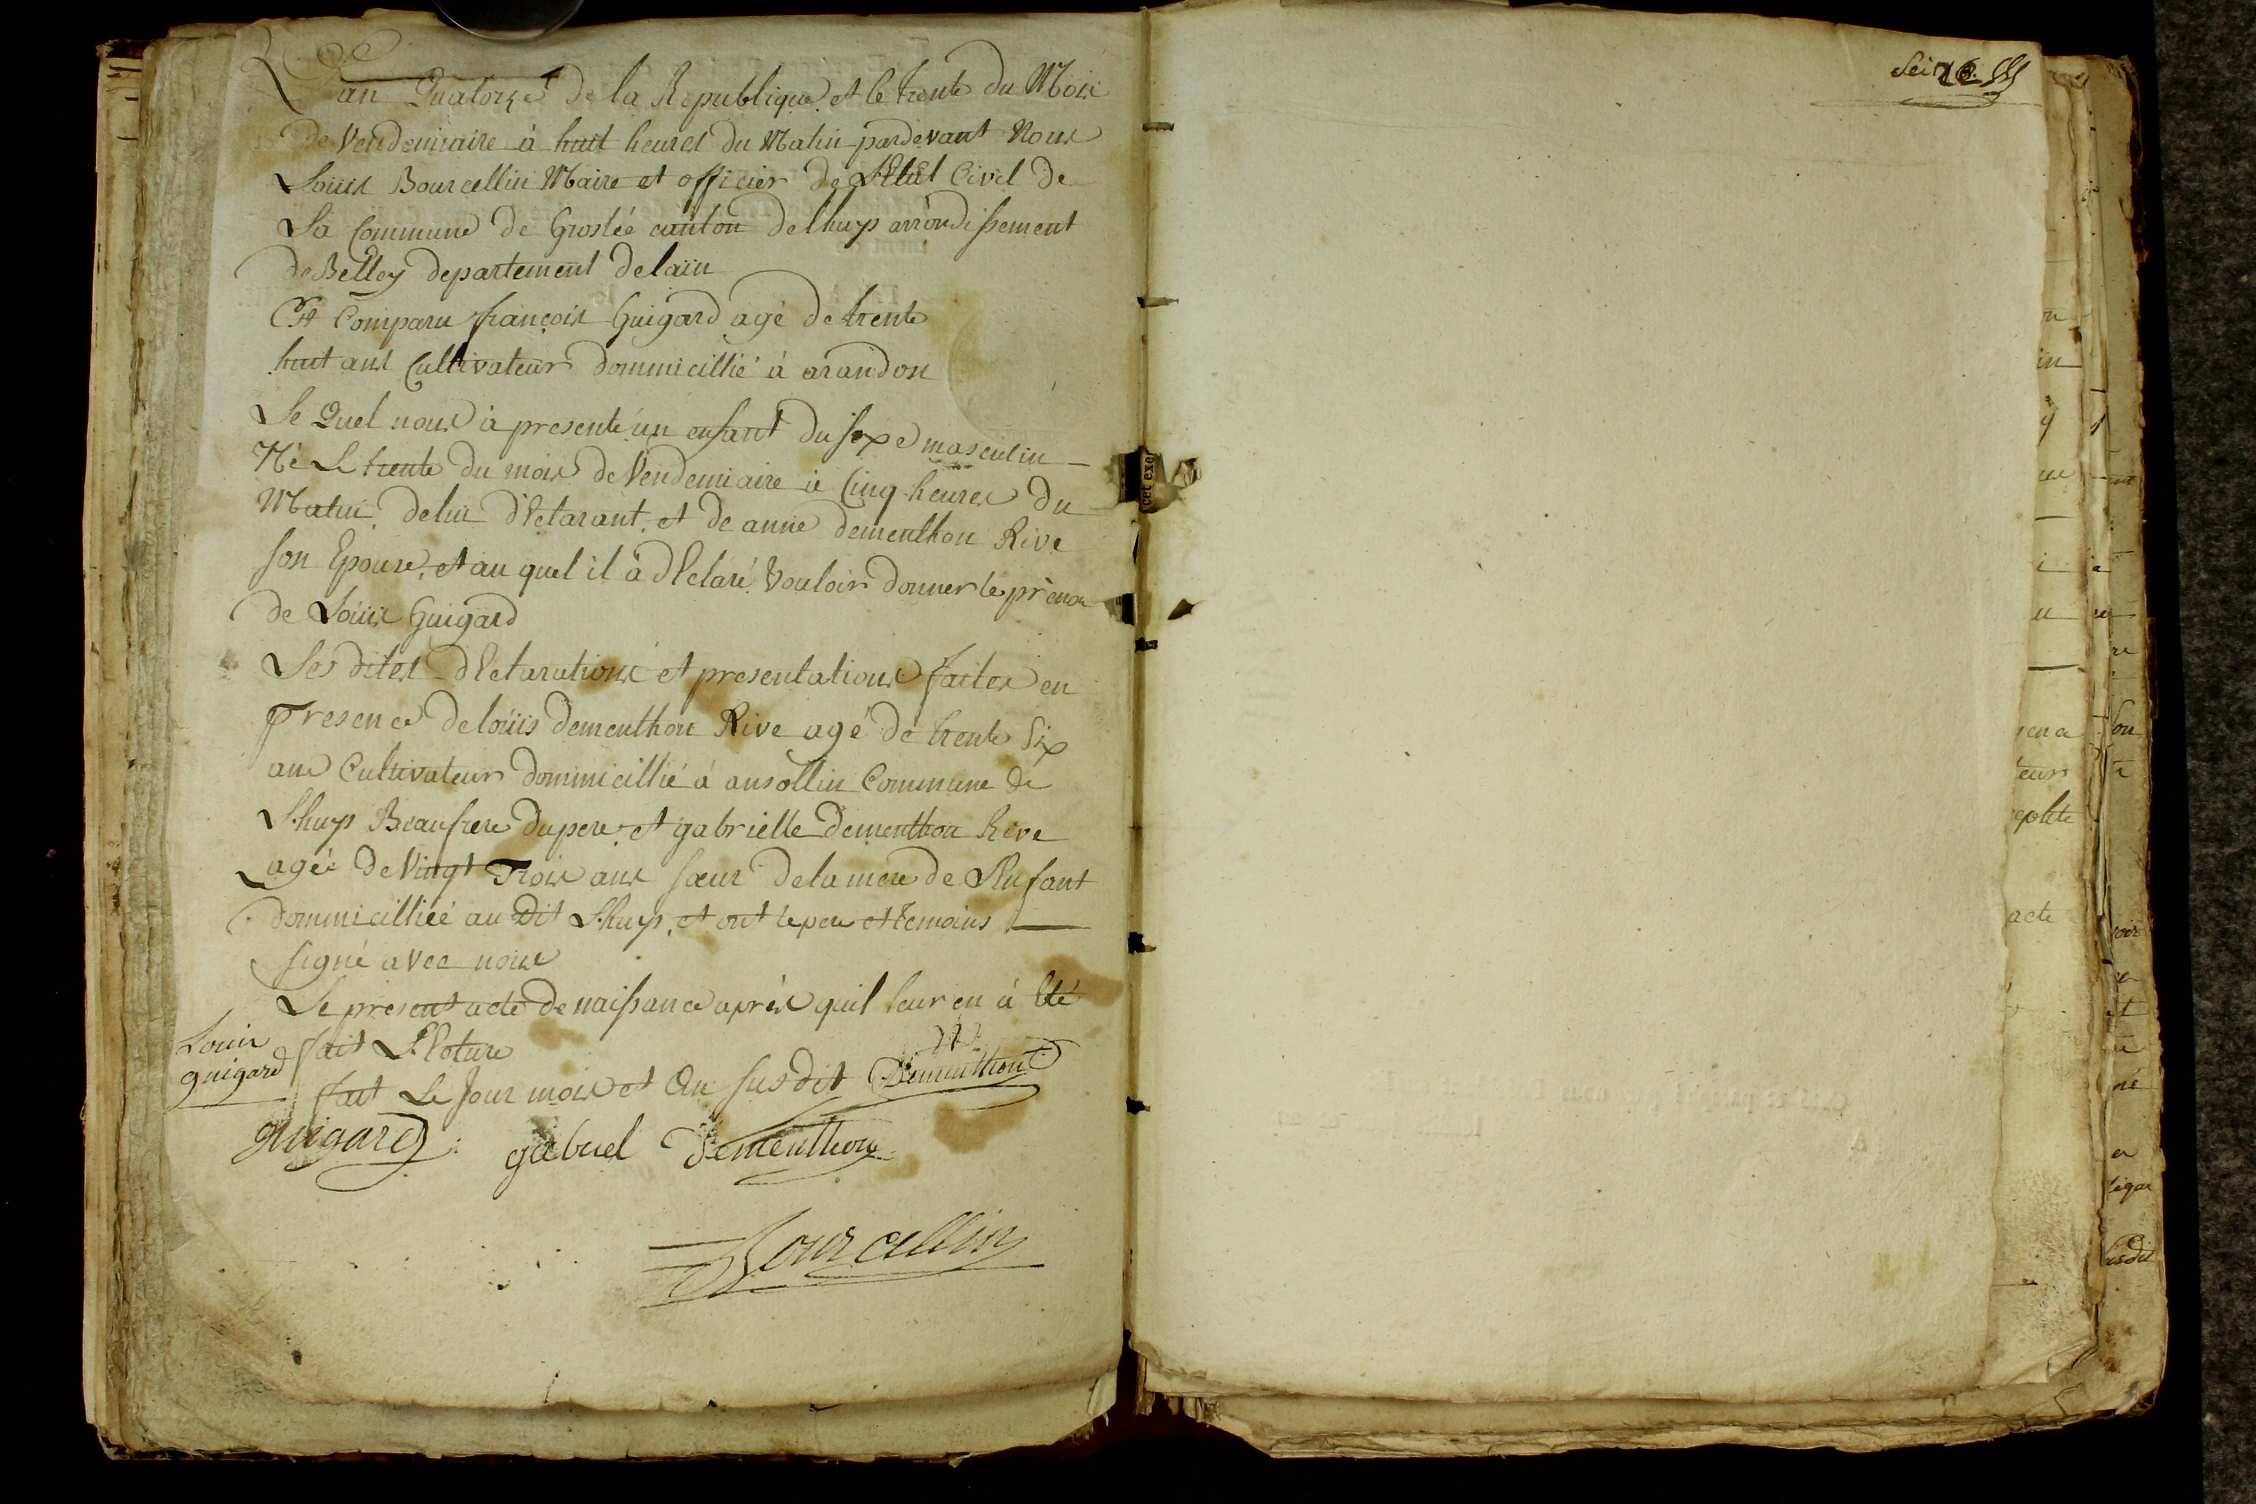 L'an Quatorze de la Republique et le trente du Mois
de Vendemiaire à huit heures du Matin pardevant Nous
Loüis Bourcellin Maire et officier de L'Etat Civil de
La Commune de Groslée canton de lhuys arrondissement
de Belley departement delain
Est Comparu françois Guigard agé de trente
huit ans Cultivateur dommicillié à arandon
Le Quel nous à presenté un enfant du sexe masculin
Né Le trente du mois de Vendemiaire à Cinq heures du
Matin, de lui d'Eclarant, et de anne dementhon Rive
son Epouse, et au quel il à dEclaré Vouloir donner le prénom
de Loüis Guigard
Les dites dEclarations et presentations faites en
presence de loüis dementhon Rive agé de trente Six
ans Cultivateur dommicillié à ansollin Commune de
Lhuys Beaufrere du pere, et gabrielle dementhon Rive
agée de Vingt Trois ans sœur de la mere de L'Enfant
dommicilliée au Dit Lhuys, et ont le pere et temoins
signé avec nous
Le present acte de naissance après quil leur en à Eté
fait Lecture
fait Le Jour mois et An susdit Dementhon
Louis
guigard
guigard gabriel Dementhon
Bourcellin
16